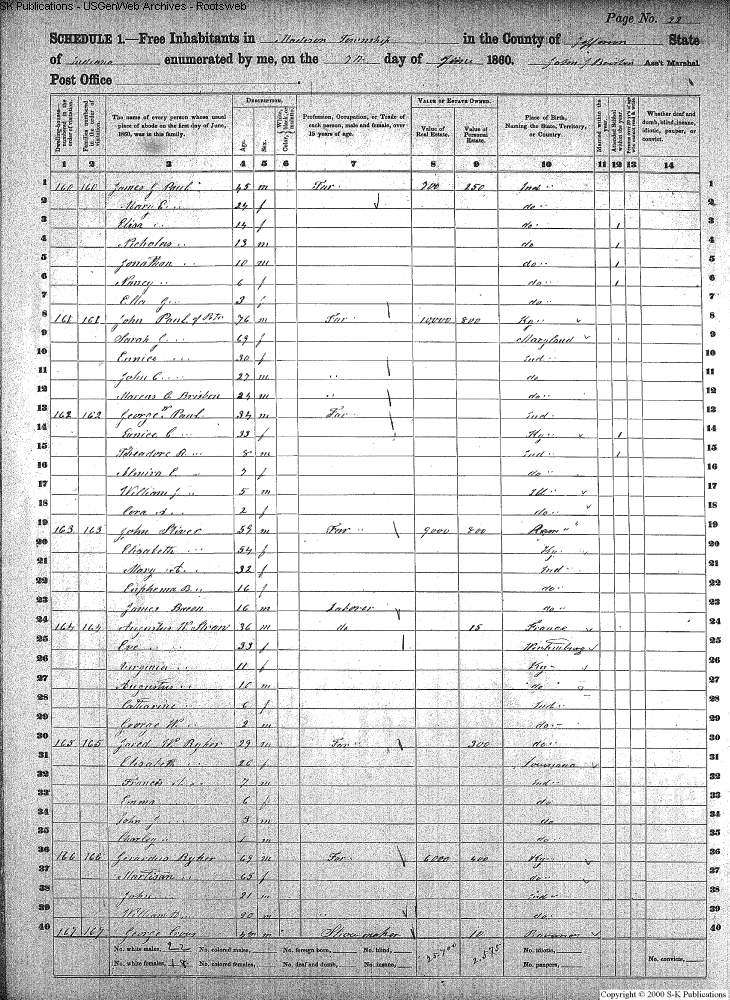 S-K Publications - USGenWeb Archives - Rootsweb
Page No. 22
SCHEDULE 1.—Free Inhabitants in Madison Township in the County of Jefferson State
of Indiana enumerated by me, on the 7th day of June 1860. John J Ass't Marshal
Post Office
Dwelling-houses—numbered in the order of visitation.
Families numbered in the order of visitation.
The name of every person whose usual place of abode on the first day of June, 1860, was in this family.
DESCRIPTION.
Age.
Sex.
Color, White, black, or mulatto.
Profession, Occupation, or Trade of each person, male and female, over 15 years of age.
VALUE OF ESTATE OWNED.
Value of Real Estate.
Value of Personal Estate.
Place of Birth, Naming the State, Territory, or Country.
Married within the year.
Attended School within the year.
Whether deaf and dumb, blind, insane, idiotic, pauper, or convict.
1 2 3 4 5 6 7 8 9 10 11 12 13 14
1 160 160 James J Paul 45 m Far 900 250 Ind 1
2 Mary E 24 f do 2
3 Eliza 14 f do 1 3
4 Nicholas 13 m do 1 4
5 Jonathan 10 m do 1 5
6 Nancy 6 f do 1 6
7 Ella J 3 f do 7
8 161 161 John Paul of 76 m Far 10,000 800 Ky 8
9 Sarah J 69 f Maryland 9
10 Eunice 30 f Ind 10
11 John C 27 m " do 11
12 Marcus C Brisben 24 m " do 12
13 162 162 George Paul 34 m Far Ind 13
14 Eunice C 33 f Ky 1 14
15 Theadore B 8 m Ind 1 15
16 Almira C 7 f do 16
17 William J 5 m Ill 17
18 Cora A 2 f do 18
19 163 163 John Stiver 59 m Far 9000 800 19
20 Elizabeth 54 f Ky 20
21 Mary A 32 f Ind 21
22 Euphema B 16 f do 22
23 James Bacon 16 m Laborer do 23
24 164 164 Augustus W 36 m do 15 France 24
25 Eve 33 f Wirtemburg 25
26 Virginia 11 f Ky 26
27 Augustus 10 m do 27
28 Catharine 6 f Ind 28
29 George W 2 m do 29
30 165 165 Jared W Ryker 29 m Far 300 do 30
31 Elizabeth 26 f Louisiana 31
32 Francis A 7 m Ind 32
33 Emma 6 f do 33
34 John J 3 m do 34
35 Charley 1 m do 35
36 166 166 Gerardus Ryker 69 m Far 6000 400 Ky 36
37 65 f do 37
38 John 21 m Ind 38
39 William B 20 m do 39
40 167 167 George 48 m Shoemaker 10 40
No. white males, 22 No. colored males, No. foreign born, No. blind, 25,900 2,575 No. idiotic,
No. white females, 18 No. colored females, No. deaf and dumb, No. insane, No. paupers, No. convicts,
Copyright © 2000 S-K Publications